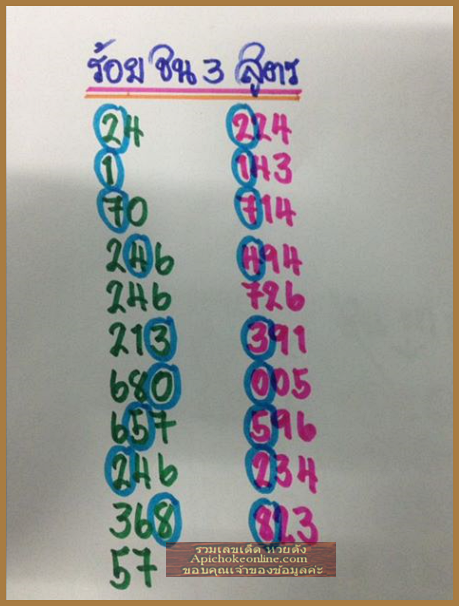 ร้อย ชน 3 สูตร
24 224
1 143
70 714
246 494
246 726
213 391
680 005
657 596
246 234
368 823
57
รวมเลขเด็ด หวยดัง
Apichokeonline.com
ขอบคุณเจ้าของข้อมูลค่ะ